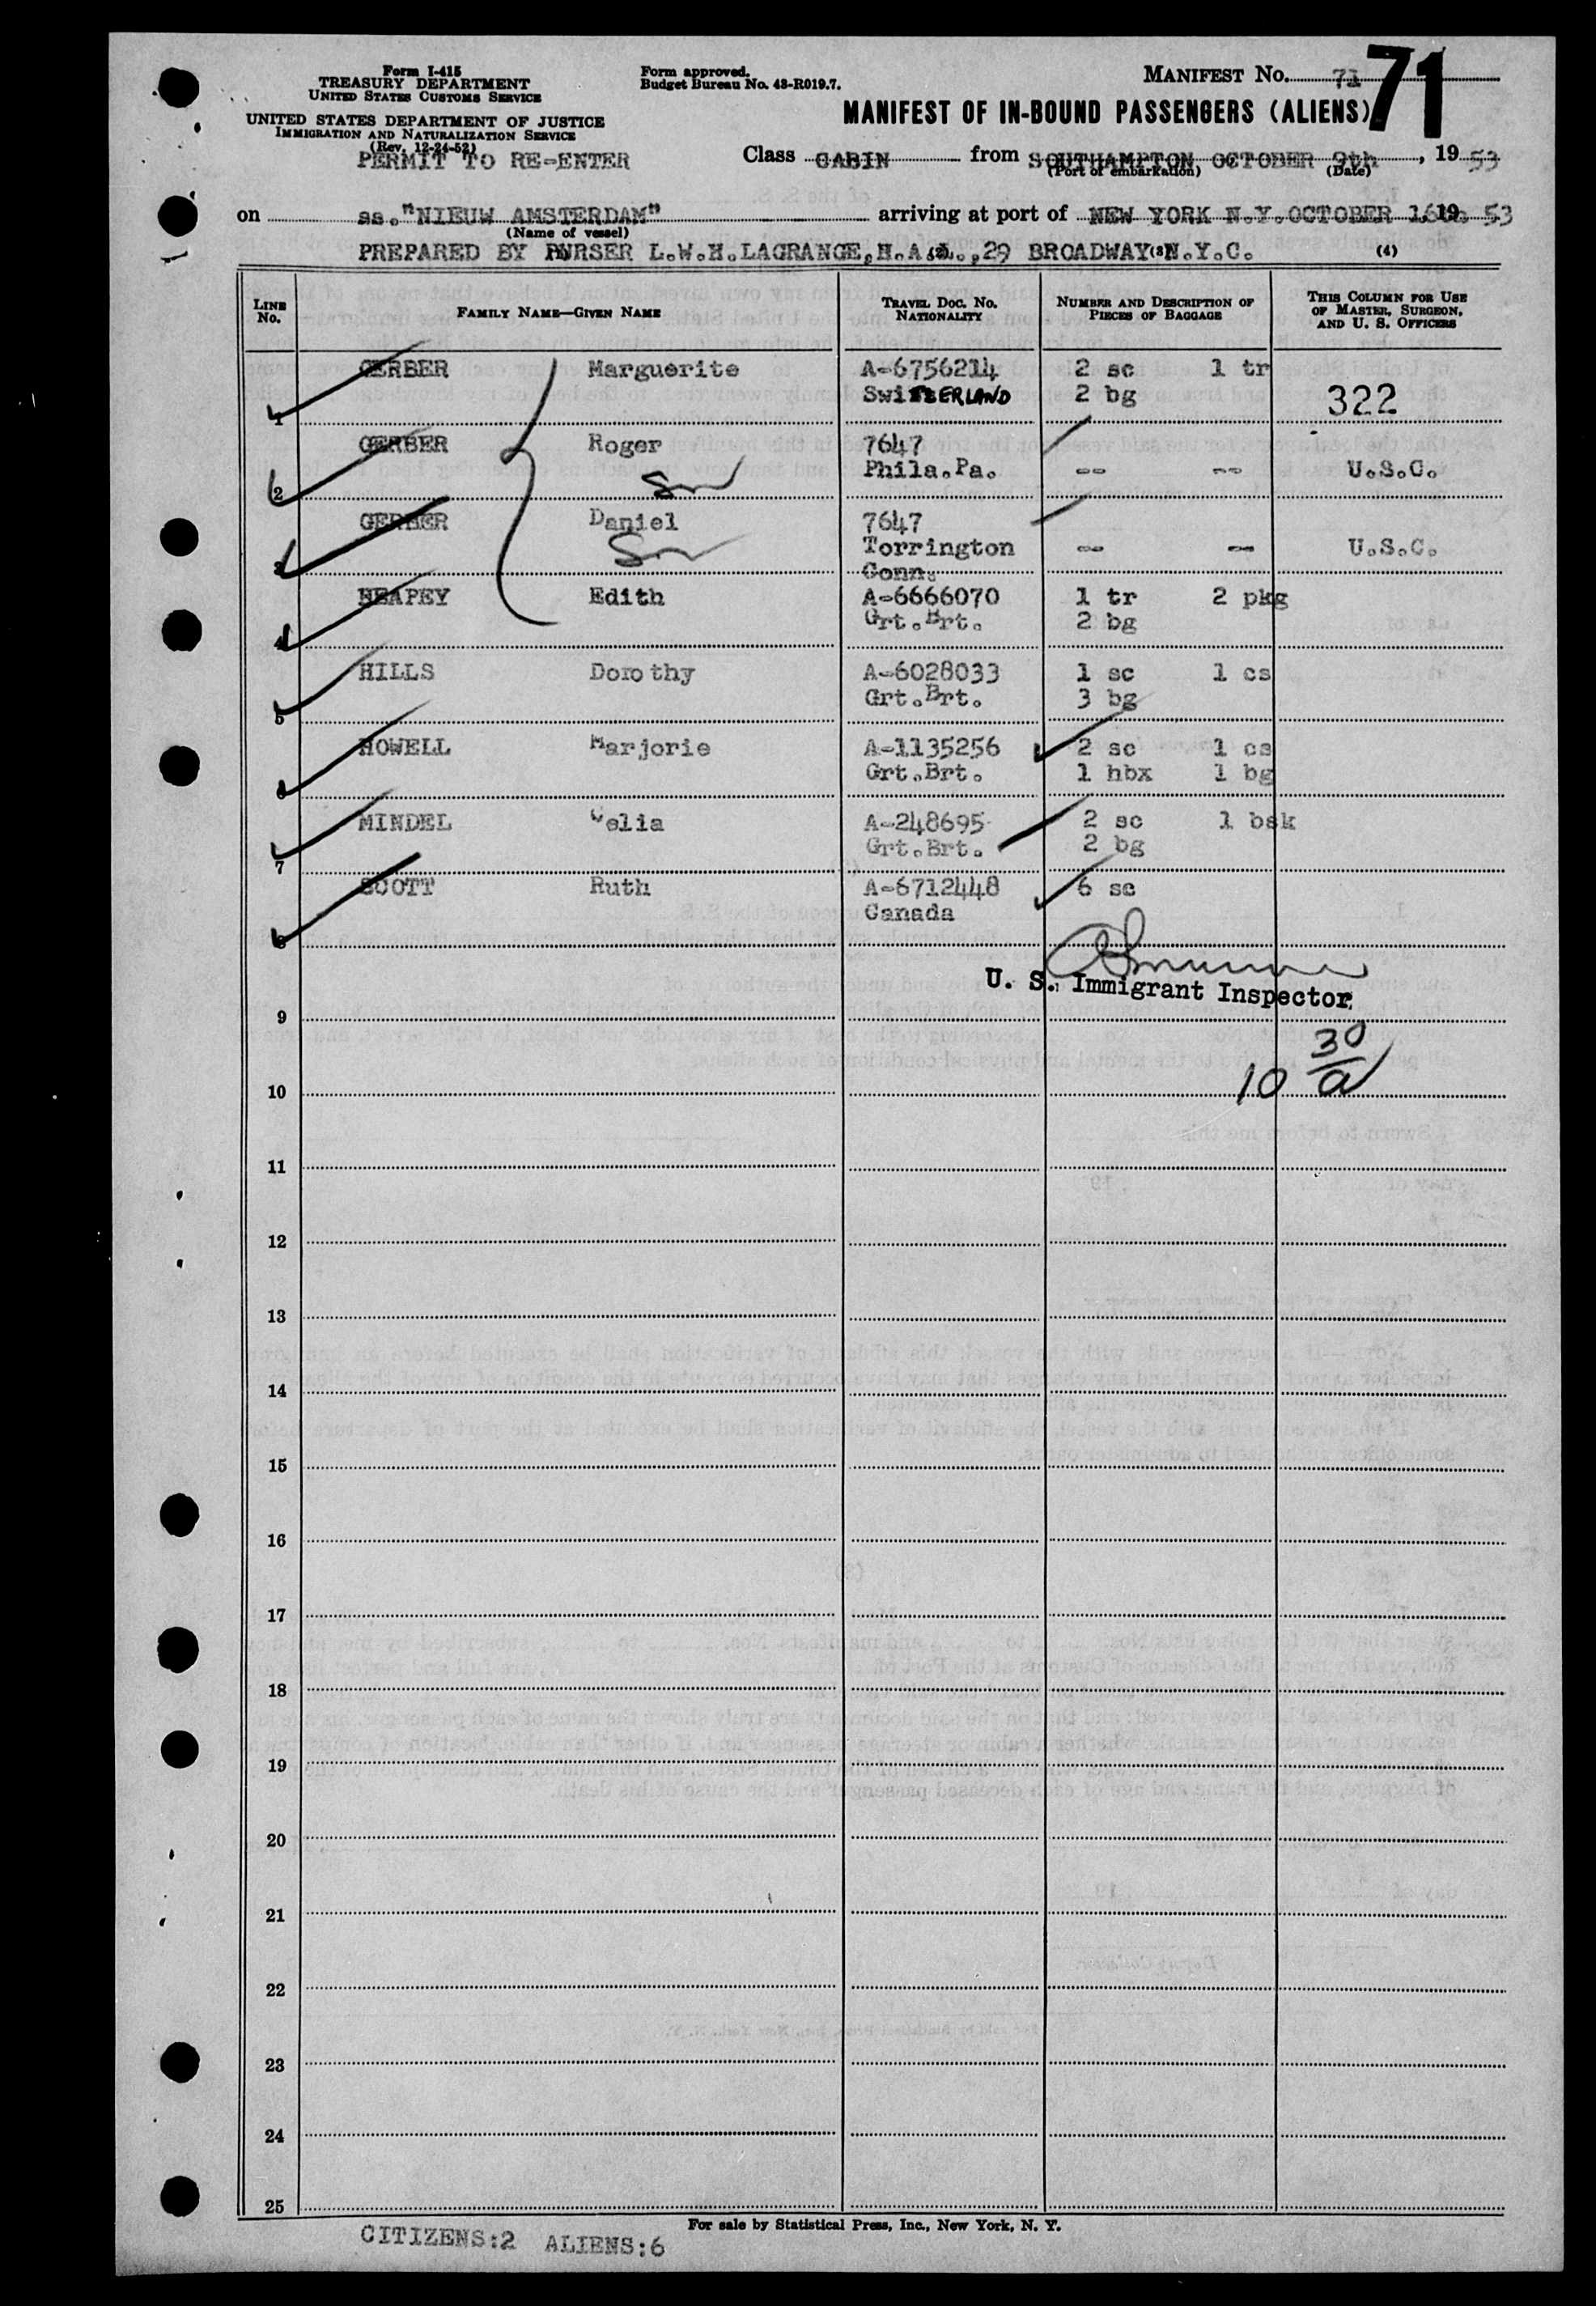 Form I-415
TREASURY DEPARTMENT
UNITED STATES CUSTOMS SERVICE
UNITED STATES DEPARTMENT OF JUSTICE
IMMIGRATION AND NATURALIZATION SERVICE
(Rev. 12-24-52)
Form approved.
Budget Bureau No. 43-R019.7.
MANIFEST No. 71
71
MANIFEST OF IN-BOUND PASSENGERS (ALIENS)
PERMIT TO RE-ENTER Class CABIN from SOUTHAMPTON OCTOBER 9th, 1953
(Port of embarkation) (Date)
on ss."NIEUW AMSTERDAM" arriving at port of NEW YORK N.Y. OCTOBER 16th 1953
(Name of vessel)
PREPARED BY PURSER L.W.H.LAGRANGE,H.A.L.,29 BROADWAY N.Y.C.
(2) (3) (4)
LINE No. FAMILY NAME—GIVEN NAME TRAVEL DOC. NO. NATIONALITY NUMBER AND DESCRIPTION OF PIECES OF BAGGAGE THIS COLUMN FOR USE OF MASTER, SURGEON, AND U. S. OFFICERS
1 GERBER Marguerite A-6756214 2 sc 1 tr
SwiTZERLAND 2 bg 322
2 GERBER Roger 7647
Phila.Pa. -- -- U.S.C.
3 GERBER Daniel 7647
Torrington -- -- U.S.C.
Conn.
4 HEAPEY Edith A-6666070 1 tr 2 pkg
Grt.Brt. 2 bg
5 HILLS Dorothy A-6028033 1 sc 1 cs
Grt.Brt. 3 bg
6 HOWELL Marjorie A-1135256 2 sc 1 cs
Grt.Brt. 1 hbx 1 bg
7 MINDEL A-248695 2 sc 1 bsk
Grt.Brt. 2 bg
8 SCOTT Ruth A-6712448 6 sc
Canada
U. S. Immigrant Inspector
9
10 30
10 a
11
12
13
14
15
16
17
18
19
20
21
22
23
24
25
For sale by Statistical Press, Inc., New York, N. Y.
CITIZENS:2 ALIENS:6